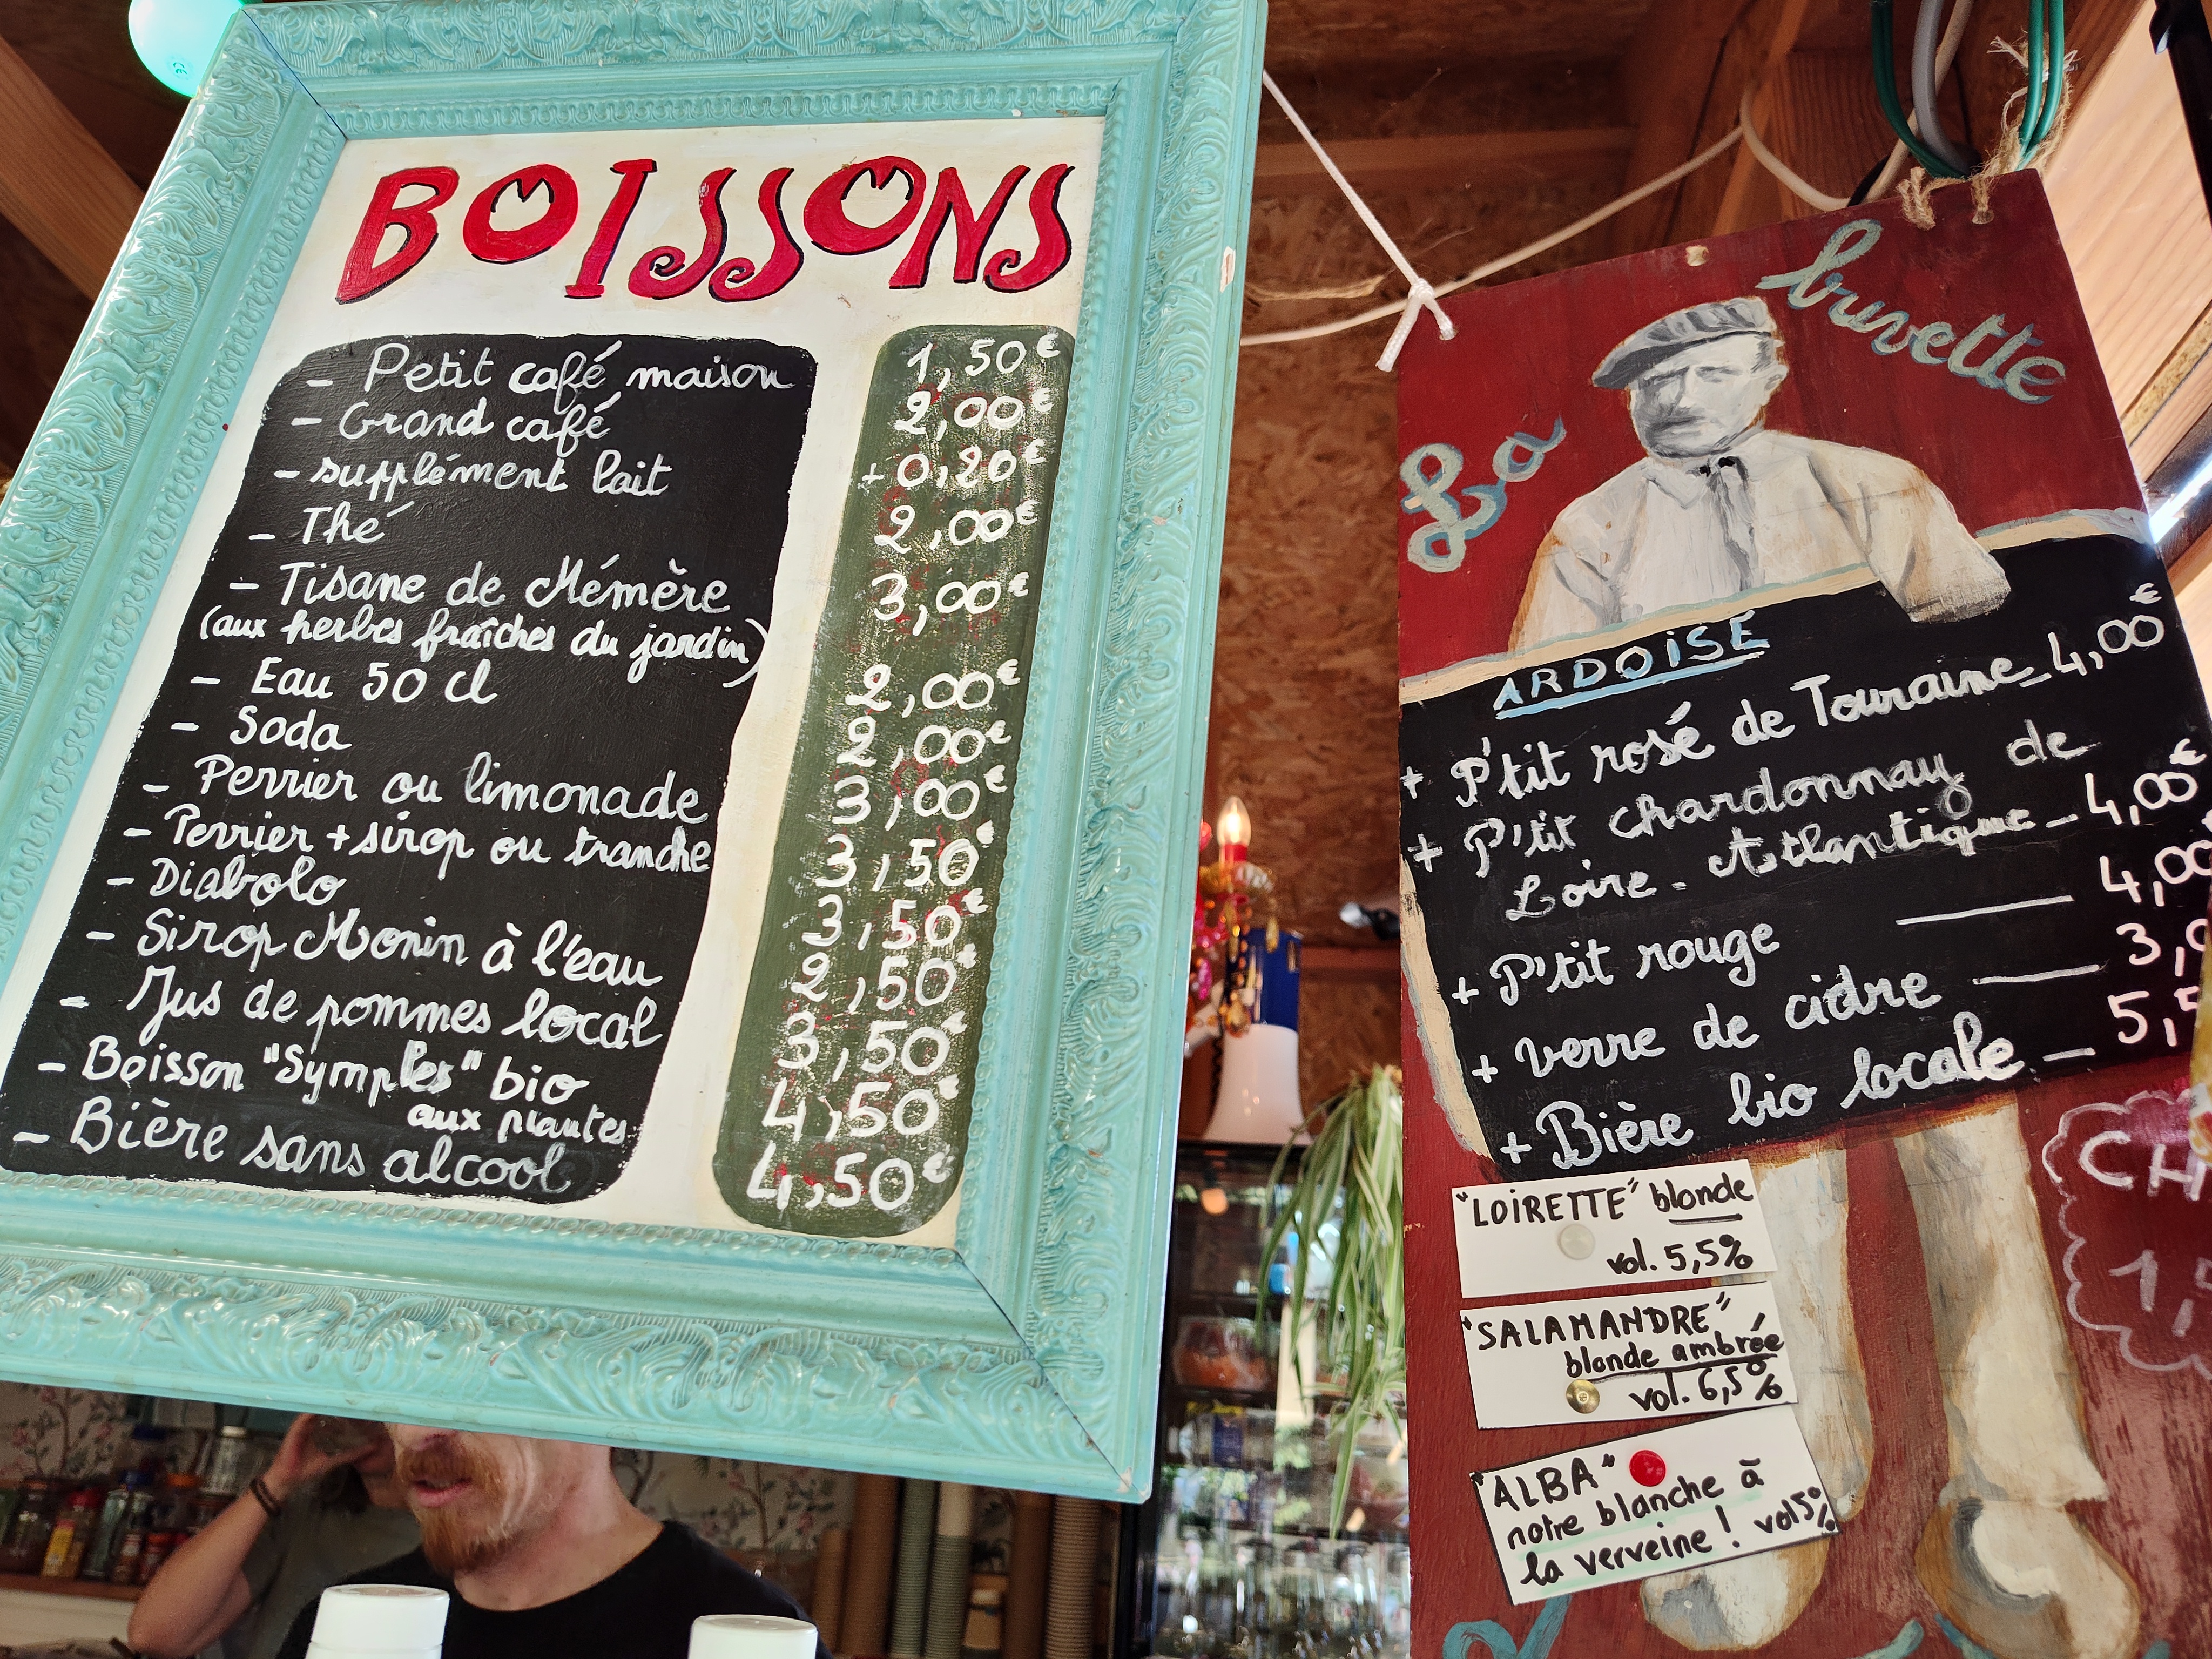 BOISSONS
- Petit café maison 1,50€
- Grand café 2,00€
- supplément lait + 0,20€
- Thé 2,00€
- Tisane de Mémère 3,00€
(aux herbes fraîches du jardin)
- Eau 50 cl 2,00€
- Soda 2,00€
- Perrier ou limonade 3,00€
- Perrier + sirop ou tranche 3,50€
- Diabolo 3,50€
- Sirop Monin à l'eau 2,50€
- Jus de pommes local 3,50€
- Boisson "Symples" bio 4,50€
aux plantes
- Bière sans alcool 4,50€
La buvette
ARDOISE
+ P'tit rosé de Touraine - 4,00€
+ P'tit chardonnay de
Loire-Atlantique - 4,00€
+ P'tit rouge — 4,00
+ verre de cidre — 3,
+ Bière bio locale - 5,5
"LOIRETTE" blonde
vol. 5,5%
"SALAMANDRE"
blonde ambrée
vol. 6,5%
"ALBA"
notre blanche à
la verveine ! vol 5%
CH